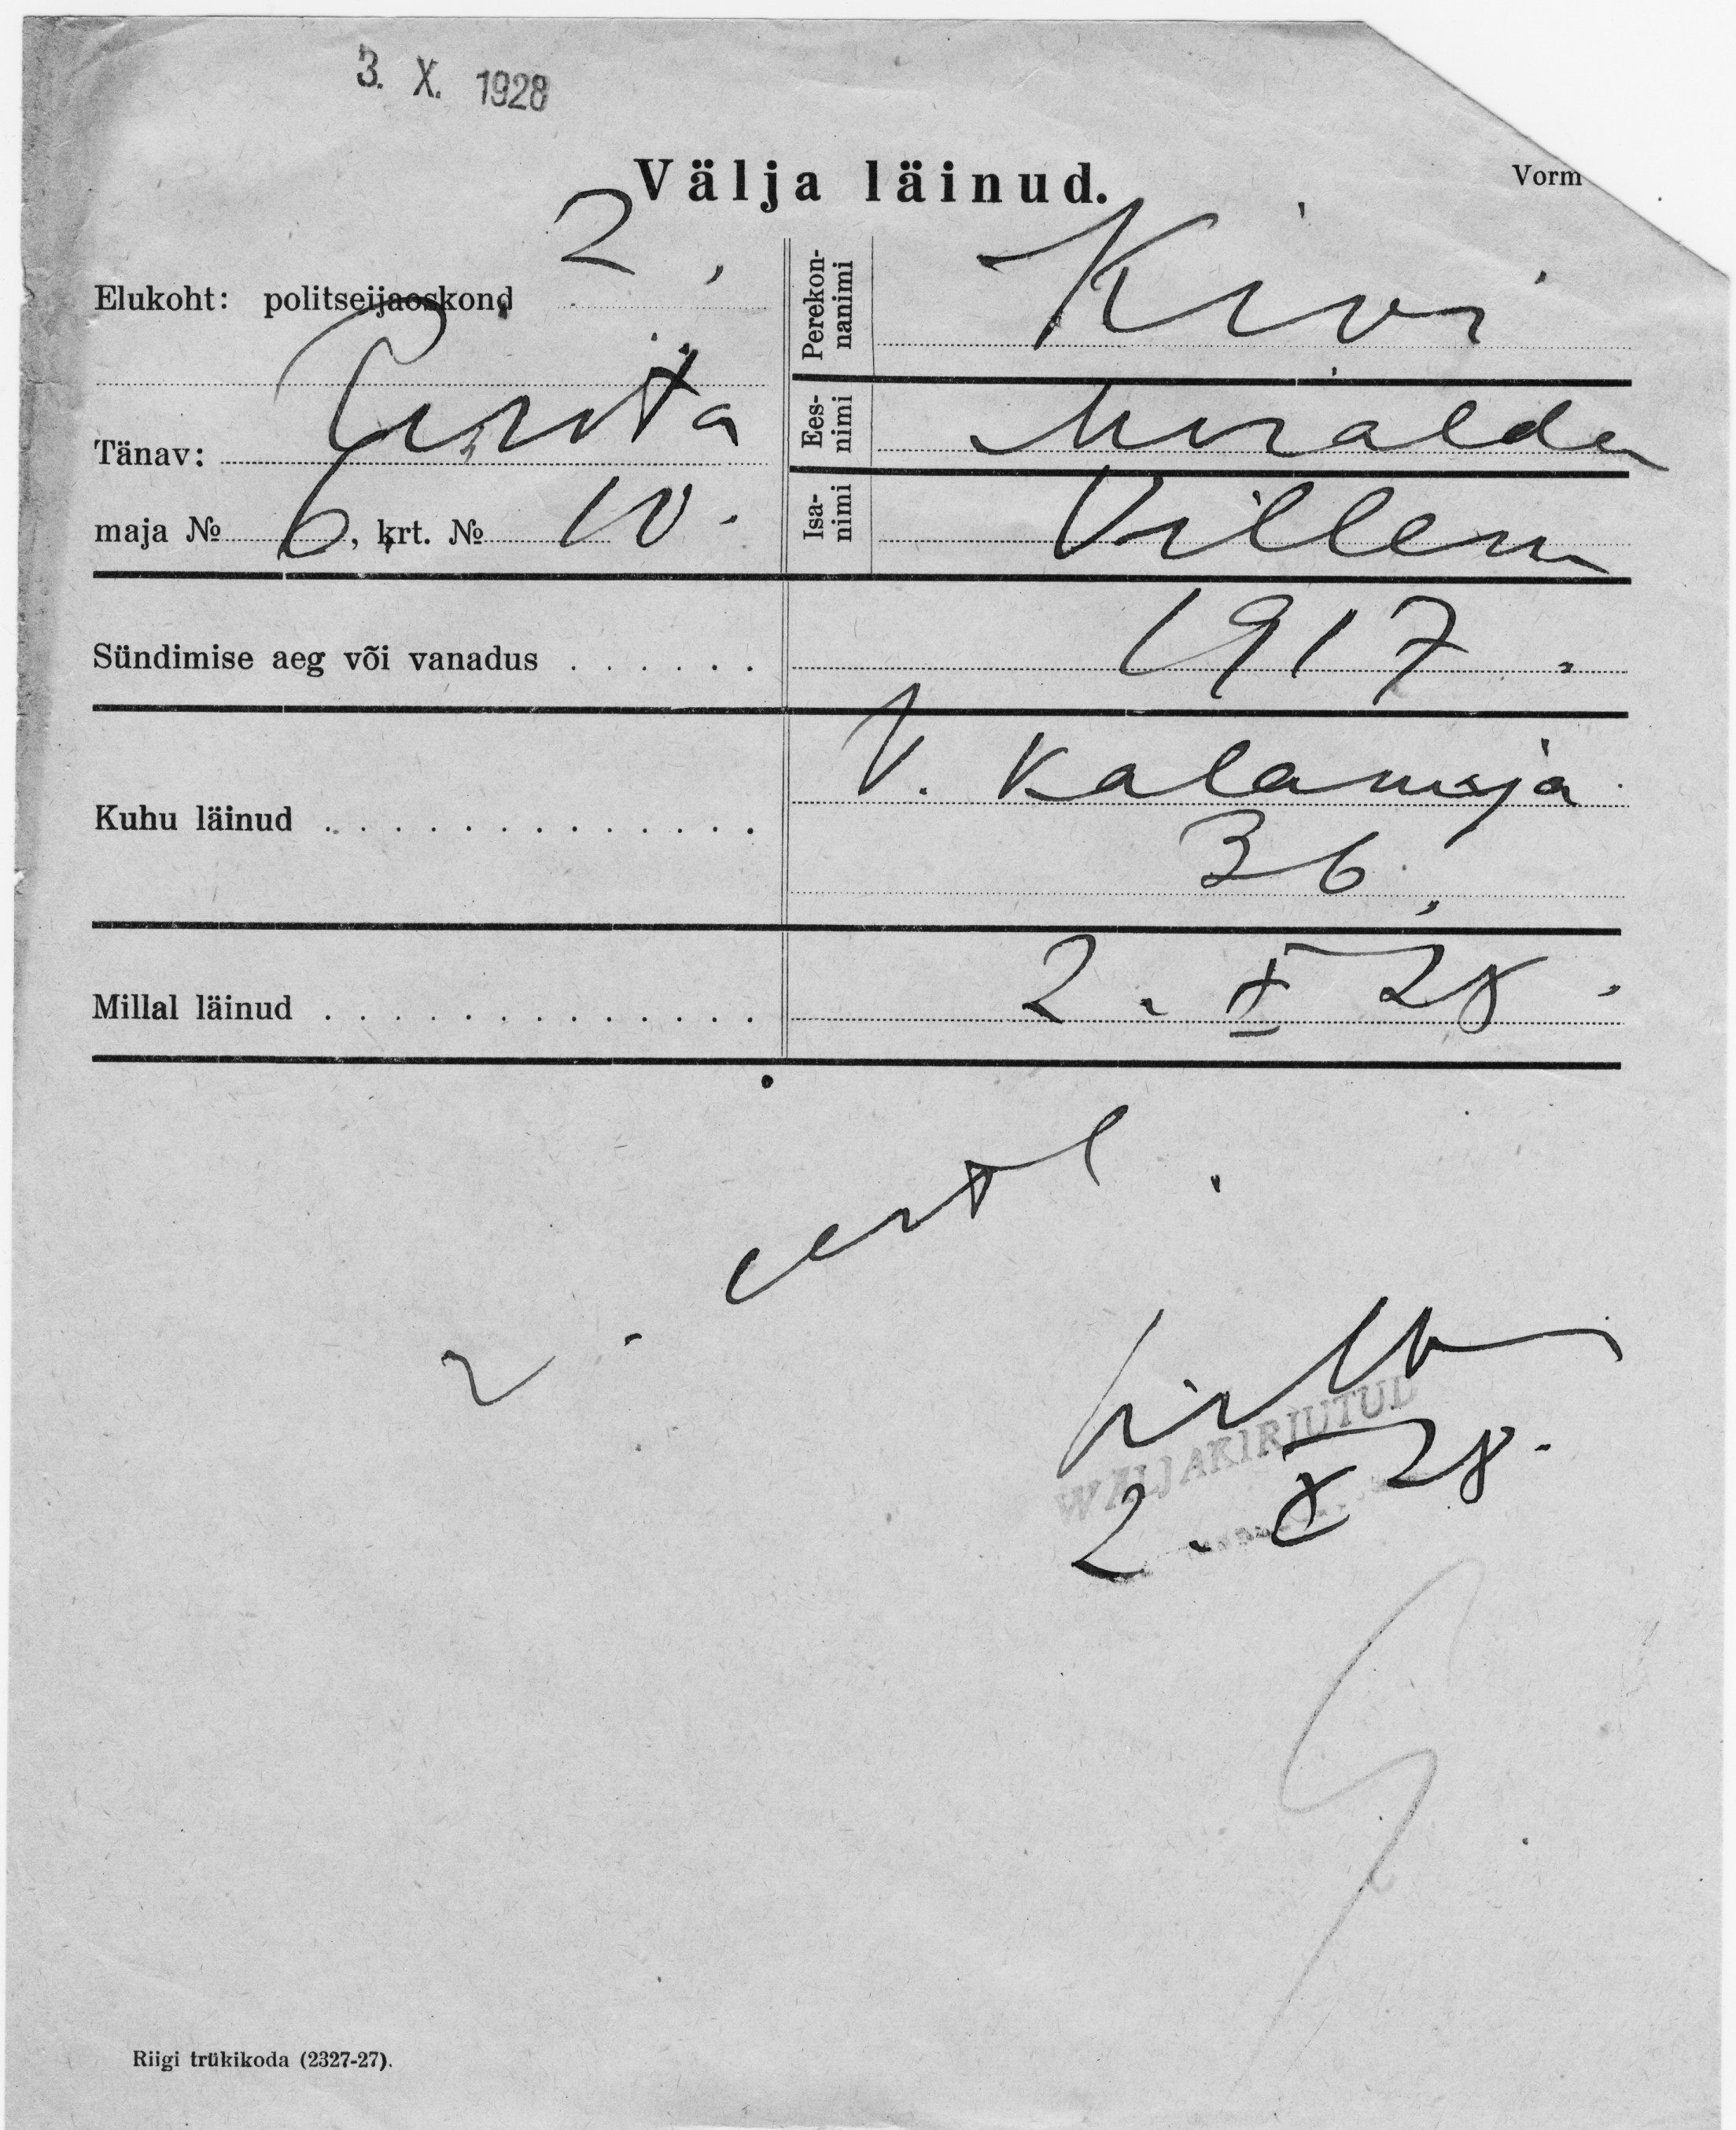 3. X. 1928
Välja läinud.
Vorm
Elukoht: politseijaoskond 2.
Tänav:
maja № 6, krt. № 10.
Perekonnanimi Kivi
Eesnimi Miralda
Isanimi Villem
Sündimise aeg või vanadus . . . . . . 1917.
Kuhu läinud . . . . . . . . . . . . . V. Kalamaja
36.
Millal läinud . . . . . . . . . . . . . 2. X 28.
eestl.
WÄLJAKIRJUTUD
2. X 28.
Riigi trükikoda (2327-27).